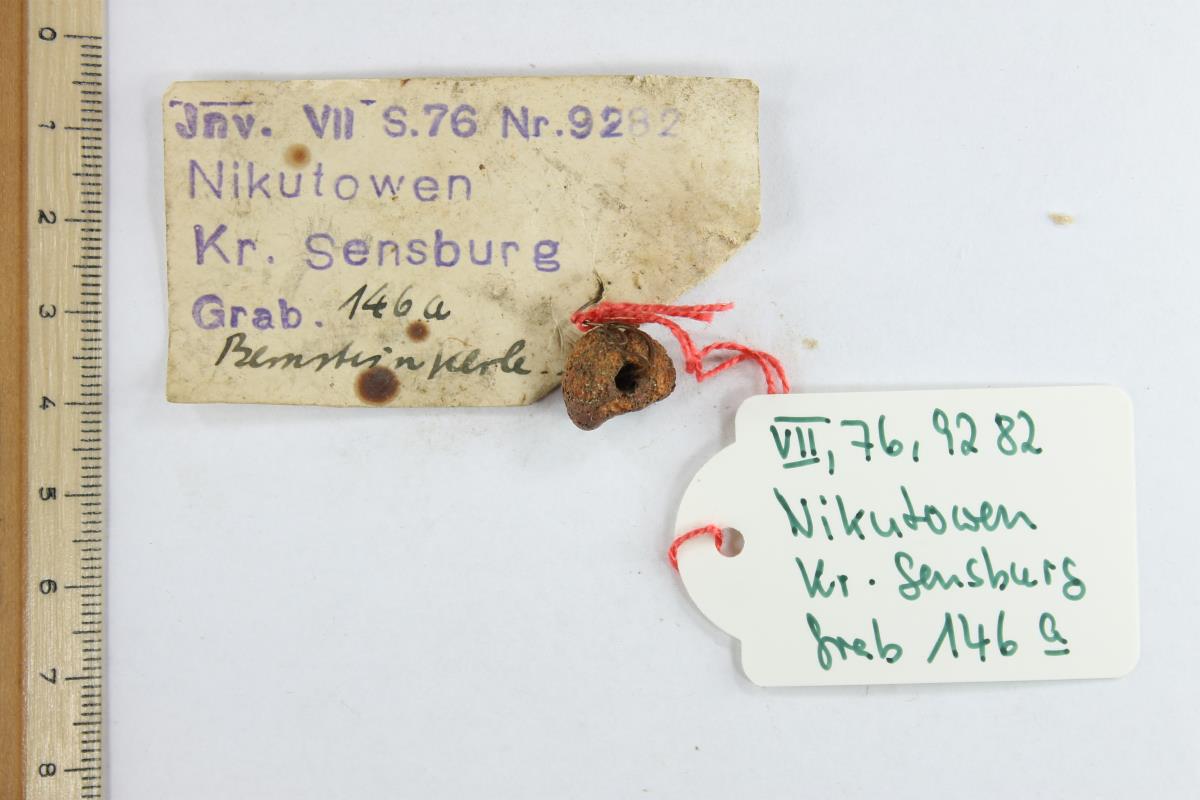 0
1
2
3
4
5
6
7
8
Jnv. VII S.76 Nr.9282
Nikutowen
Kr. Sensburg
Grab. 146a
Bernsteinperle.
VII, 76, 9282
Nikutowen
Kr. Sensburg
Grab 146 a